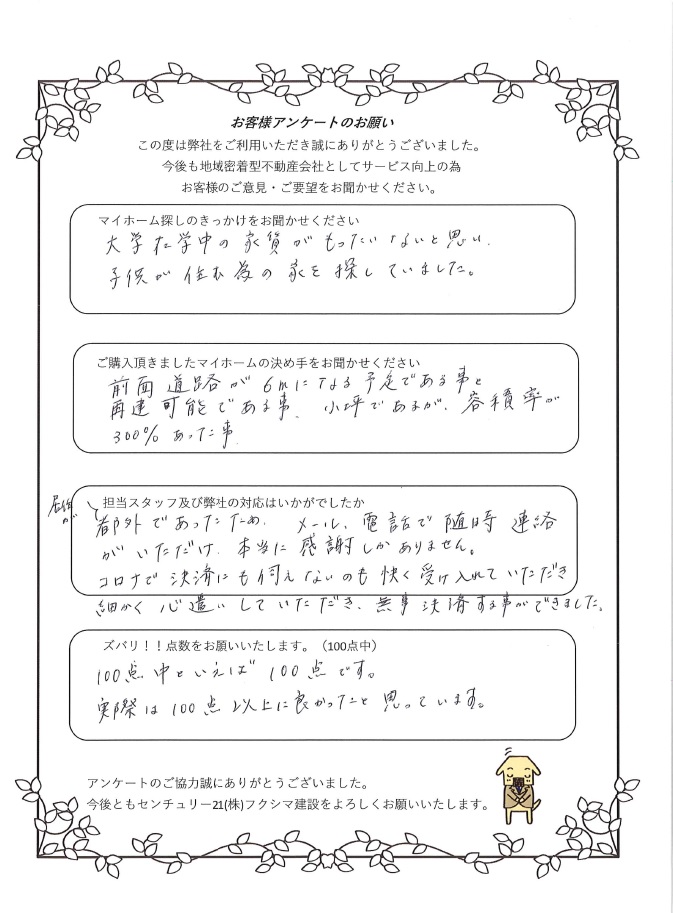 お客様アンケートのお願い
この度は弊社をご利用いただき誠にありがとうございました。
今後も地域密着型不動産会社としてサービス向上の為
お客様のご意見・ご要望をお聞かせください。
マイホーム探しのきっかけをお聞かせください
大学在学中の家賃がもったいないと思い、
子供が住む為の家を探していました。
ご購入頂きましたマイホームの決め手をお聞かせください
前面道路が6mになる予定である事と
再建可能である事、小坪であるが、容積率が
300%あった事
担当スタッフ及び弊社の対応はいかがでしたか
居住が
都外であったため、メール、電話で随時連絡
がいただけ、本当に感謝しかありません。
コロナで決済にも伺えないのも快く受け入れていただき
細かく心遣いしていただき、無事決済する事ができました。
ズバリ！！点数をお願いいたします。（100点中）
100点中といえば100点です。
実際は100点以上に良かったと思っています。
アンケートのご協力誠にありがとうございました。
今後ともセンチュリー21(株)フクシマ建設をよろしくお願いいたします。